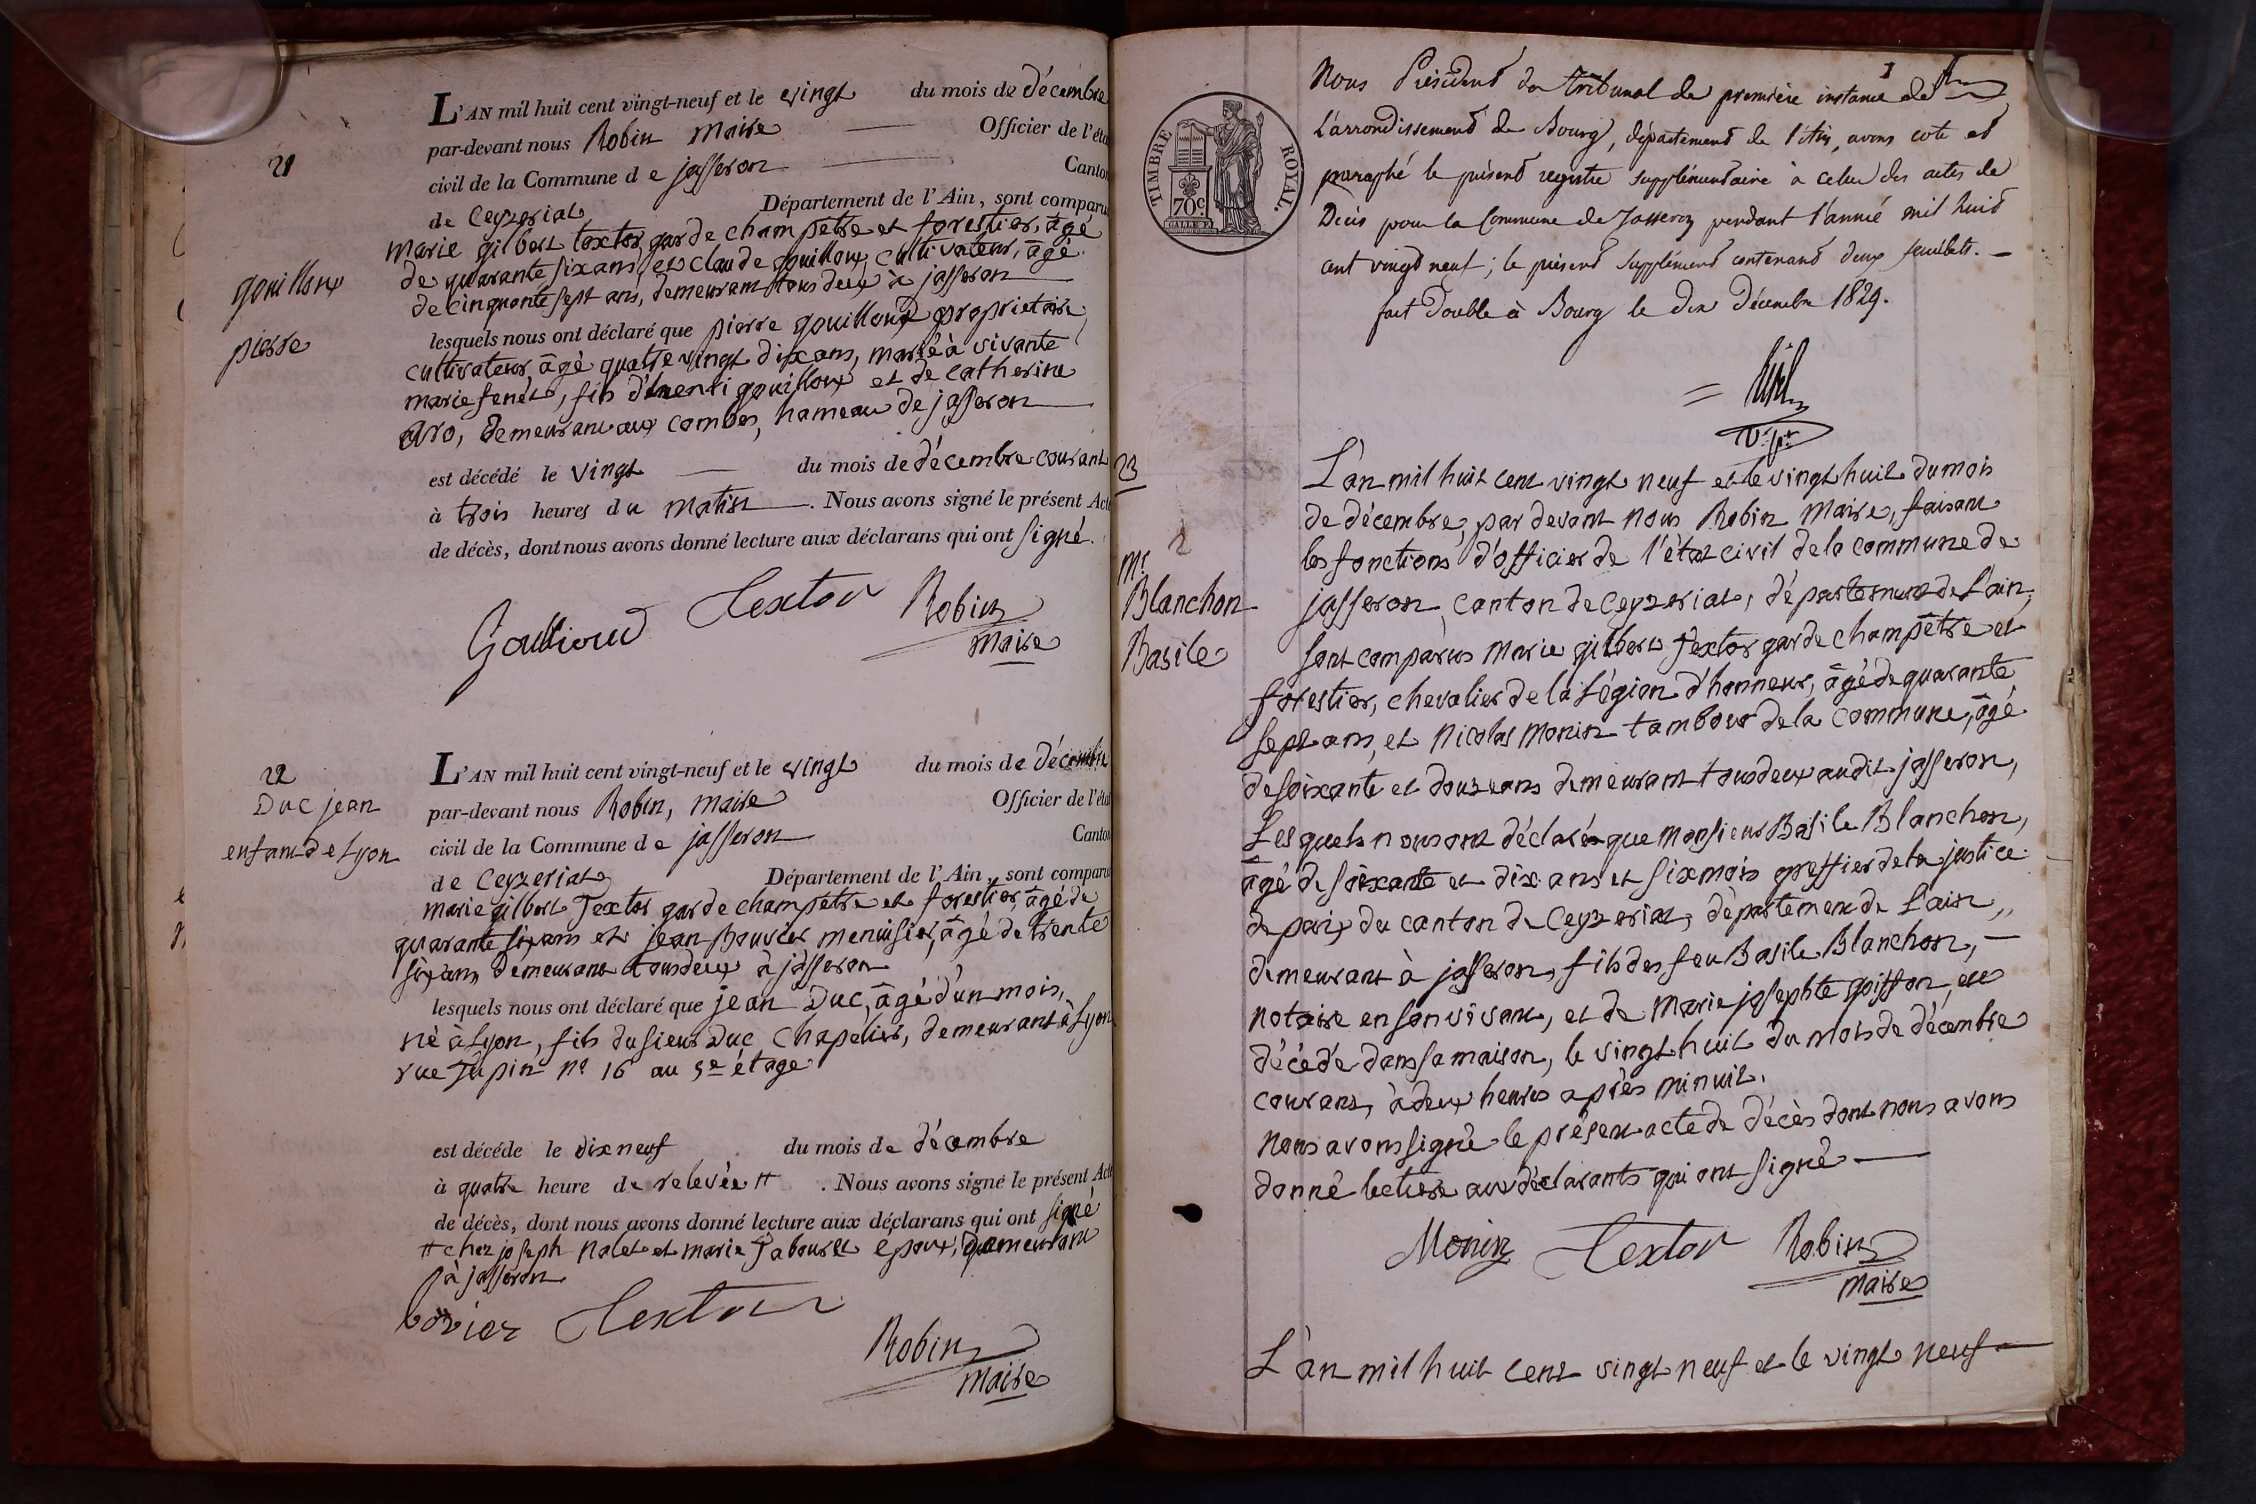 21
gouilloux
pierre
L'AN mil huit cent vingt-neuf et le vingt du mois de décembre
par-devant nous Robin Maire Officier de l'éta
civil de la Commune de jasseron Canton
de Ceyzeriat Département de l'Ain, sont comparu
marie gilbert textor garde champêtre et forestier, âgé
de quarante six ans, et claude gouilloux, cultivateur, âgé
de cinquante sept ans, demeurant tous deux à jasseron
lesquels nous ont déclaré que pierre gouilloux proprietaire
cultivateur, âgé quatre vingt dix ans, marié à vivante
marie fenet, fils d'henri gouilloux et de catherine
aro, demeurant aux combes, hameau de jasseron
est décédé le vingt du mois de décembre courant
à trois heures du matin. Nous avons signé le présent Acte
de décès, dont nous avons donné lecture aux déclarans qui ont signé.
Gouilloud Textor Robin
maire
22
Duc jean
enfant de Lyon
L'AN mil huit cent vingt-neuf et le vingt du mois de décembre
par-devant nous Robin, maire Officier de l'état
civil de la Commune de jasseron Canton
de Ceyzeriat Département de l'Ain, sont comparu
marie gilbert Textor garde champêtre et forestier, âgé de
quarante six ans et jean Bouvier menuisier, âgé de trente
six ans, demeurant tous deux à jasseron
lesquels nous ont déclaré que jean Duc, âgé d'un mois,
né à Lyon, fils du sieur Duc Chapelier, demeurant à Lyon
rue Tupin n° 16 au 5e étage
est décéde le dix neuf du mois de décembre
à quatre heure de relevée #. Nous avons signé le présent Acte
de décès, dont nous avons donné lecture aux déclarans qui ont signé
# chez joseph nalet et marie Tabouret époux, demeurant
à jasseron
bovier Textor
Robin
maire
TIMBRE ROYAL.
70c
1
Nous Président du tribunal de première instance de
l'arrondissement de Bourg, département de l'Ain, avons coté et
paraphé le présent registre supplémentaire à celui des actes de
Décès pour la Commune de Jasseron pendant l'année mil huit
cent vingt neuf; le présent supplément contenant deux feuillets. —
fait Double à Bourg le dix Décembre 1829.
23
Mr
Blanchon
Basile
L'an mil huit cent vingt neuf et le vingt huit du mois
de décembre, par devant nous Robin Maire, faisant
les fonctions d'officier de l'état civil de la commune de
jasseron, canton de Ceyzeriat, département de l'ain,
sont comparus Marie gilbert Textor garde champêtre et
forestier, chevalier de la Légion d'honneur, âgé de quarante
sept ans, et Nicolas Monin tambour de la commune, âgé
de soixante et douze ans demeurant tous deux audit jasseron,
Lesquels nous ont déclaré que Monsieur Basile Blanchon,
âgé de soixante et dix ans et six mois greffier de la justice
de paix du canton de Ceyzeriat, département de l'ain,,
demeurant à jasseron, fils des feu Basile Blanchon, —
notaire en son vivant, et de Marie josephte goiffon, est
décédé dans sa maison, le vingt huit du mois de décembre
courant, à deux heures après minuit.
Nous avons signé le présent acte de décès dont nous avons
donné lecture aux déclarants qui ont signé —
Monin Textor Robin
maire
L'an mil huit cent vingt neuf et le vingt neuf —